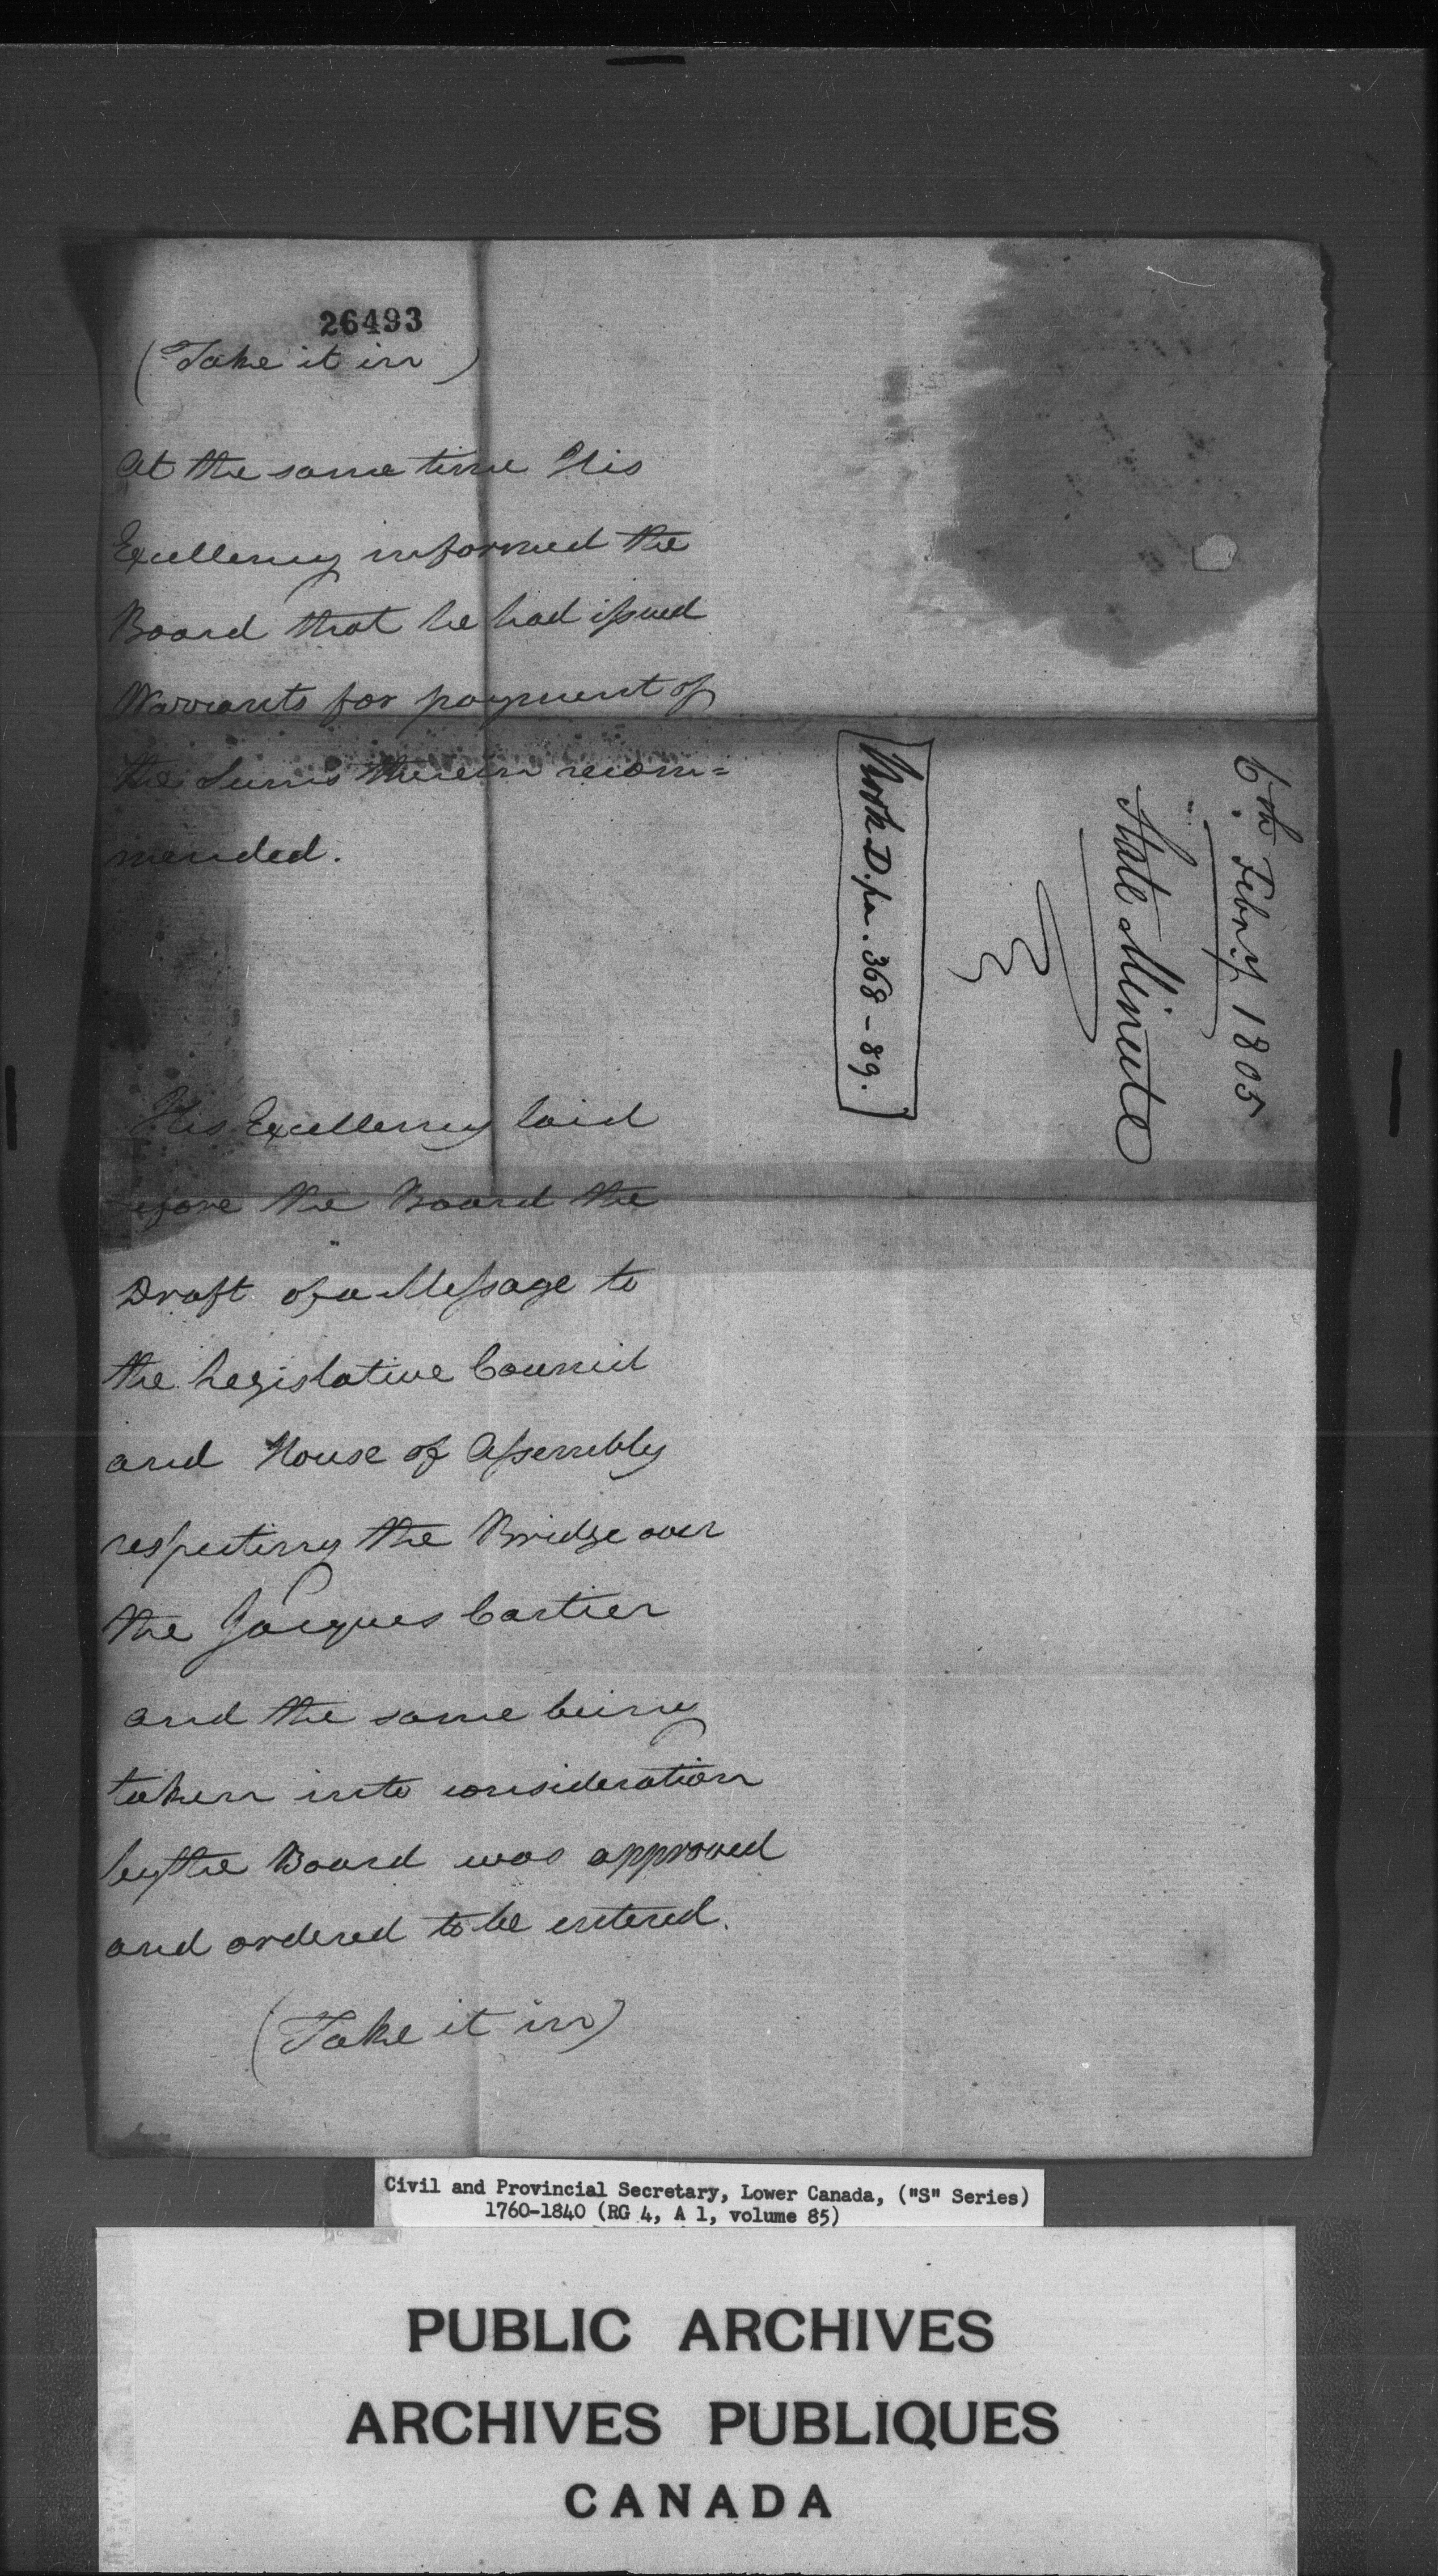 26493
(Take it in)
At the same time His
Excellency informed the
Board that he had issued
Warrants for payment of
the Sums therein recom=
mended.
His Excellency laid
before the Board the
Draft of a Message to
the Legislative Council
and House of Assembly
respecting the Bridge over
the Jacques Cartier
and the same being
taken into consideration
by the Board was approved
and ordered to be entered.
(Take it in)
6th Febry. 1805
State Minute
Book D. pa. 368-89.
Civil and Provincial Secretary, Lower Canada, ("S" Series)
1760-1840 (RG 4, A 1, volume 85)
PUBLIC ARCHIVES
ARCHIVES PUBLIQUES
CANADA